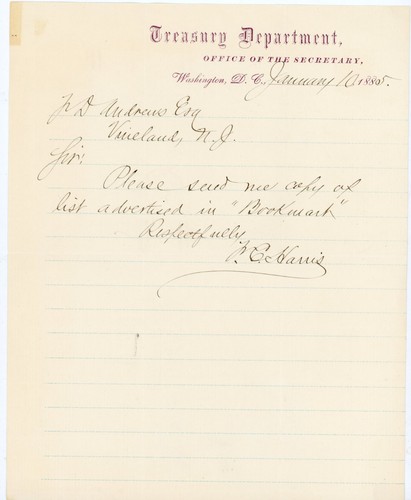 Treasury Department,
OFFICE OF THE SECRETARY,
Washington, D. C., January 10 1885.
F D Andrews Esq
Vineland, N. J.
Sir:
Please send me copy of
list advertised in "Bookmark"
Respectfully
F. C. Harris